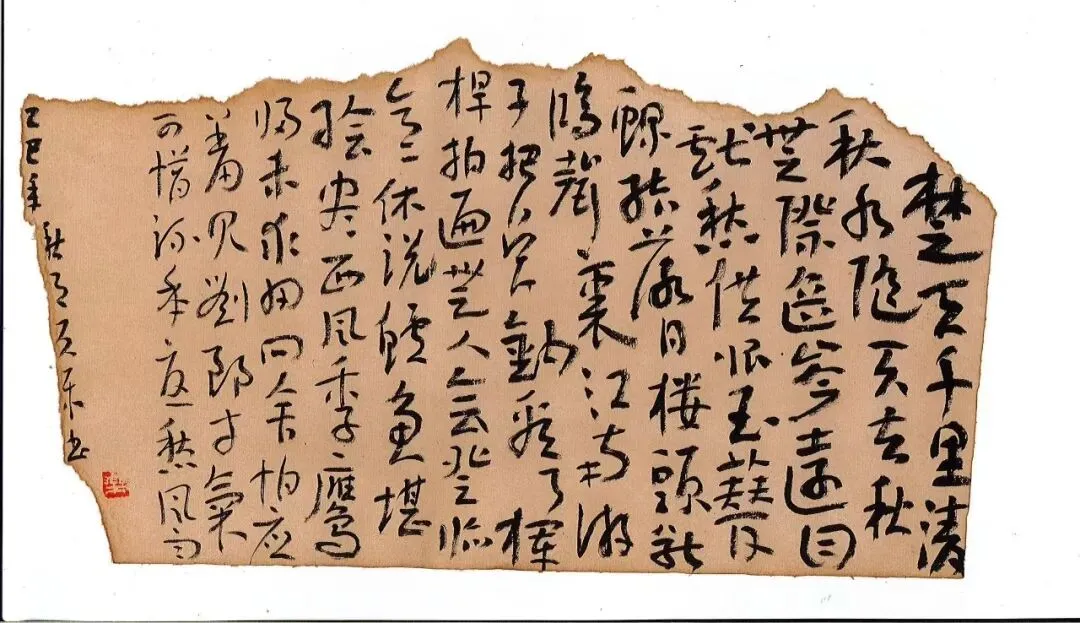 楚天千里清
秋水隨天去秋
无際遥岑遠目
献愁供恨玉簪
螺髻落日楼頭断
鴻聲裏江南游
子把吴鈎看了欄
桿拍遍无人会登临
意休说鲈鱼堪
脍尽西风季鹰
归未求田问舍怕应
羞见劉郎才氣
可惜流年忧愁风雨
乙巳年秋月书